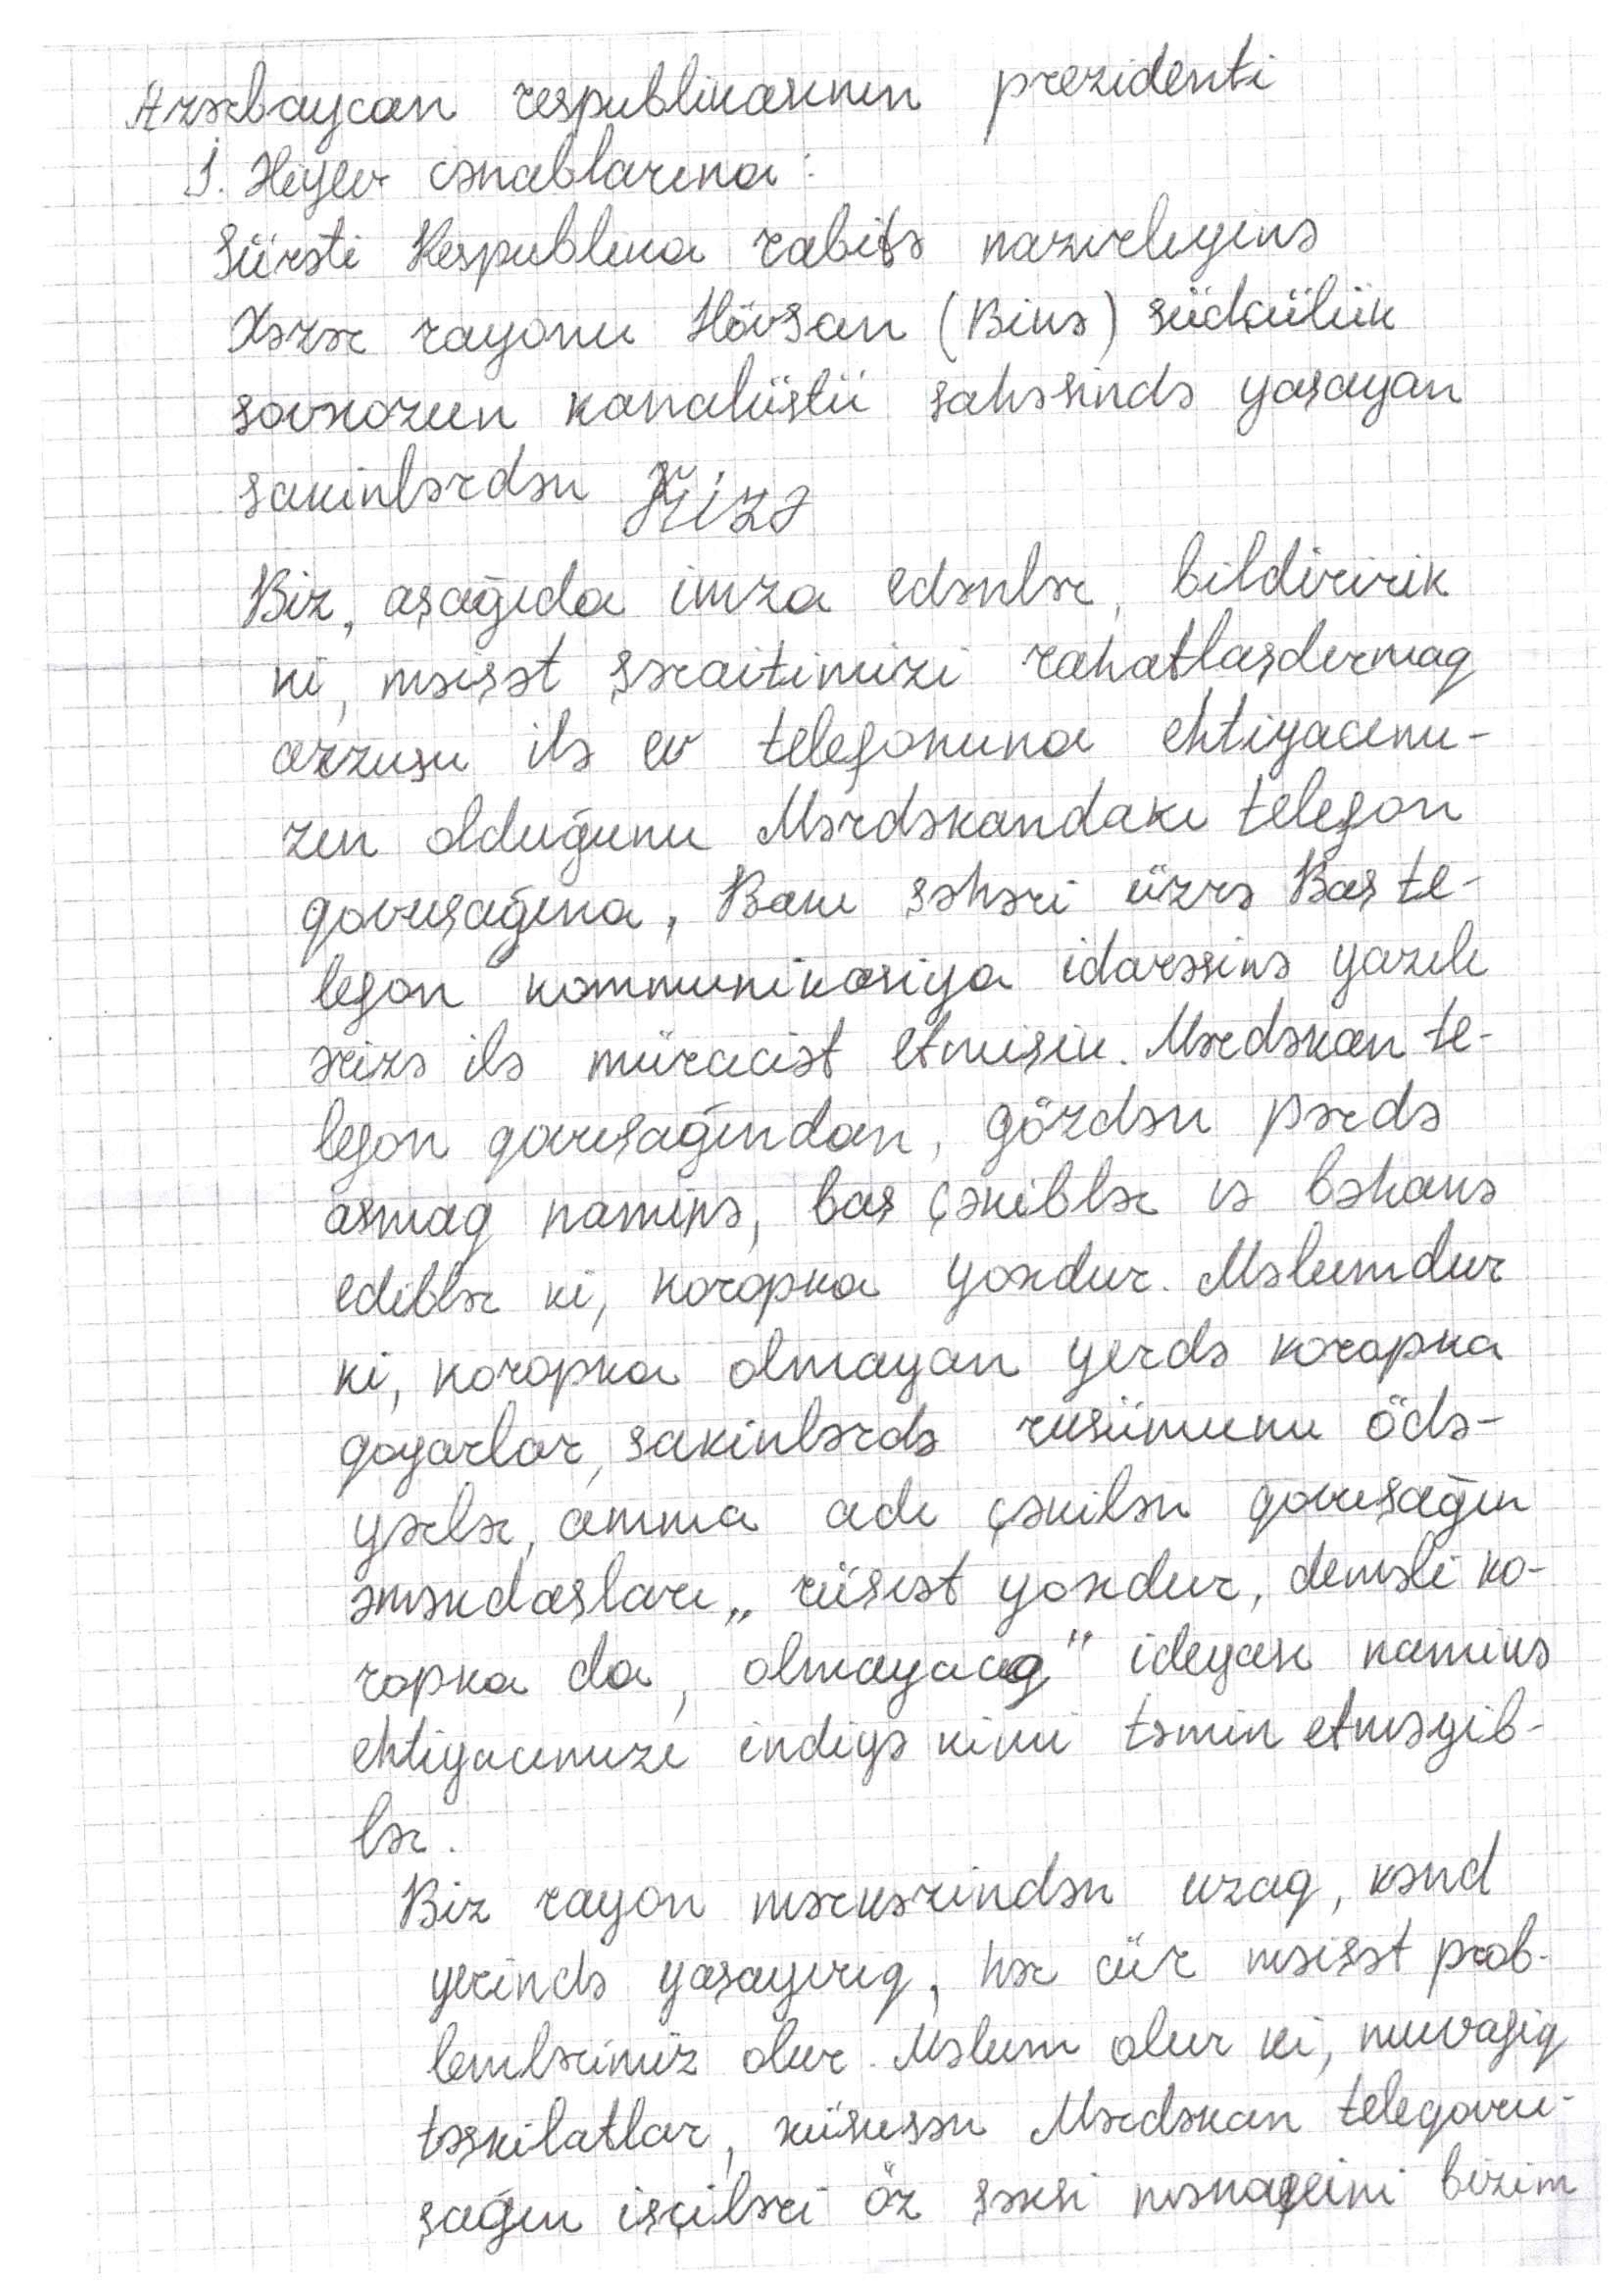 Azərbaycan respublikasının prezidenti
İ. Əliyev cənablarına:
Sürəti Respublika rabitə nazırlıyınə
Xəzər rayonu Hövsan (Binə) südçülük
sovxozun kanalüstü sahəsində yaşayan
sakinlərdən Ərizə
Biz, aşağıda imza edənlər, bildiririk
ki, məişət şəraitimizi rahatlaşdırmaq
arzusu ilə ev telefonuna ehtiyacımı-
zın olduğunu Mərdəkandakı telefon
qovuşağına, Bakı şəhəri üzrə Baş te-
lefon kommunikasiya idarəsinə yazılı
ərizə ilə müraciət etmişik. Mərdəkan te-
lefon qovuşağından, gözdən pərdə
asmaq naminə, baş çəkiblər və bəhanə
ediblər ki, koropka yoxdur. Məlumdur
ki, koropka olmayan yerdə koropka
qoyarlar, sakinlərdə rusümunu ödə-
yərlər, amma adı çəkilən qovuşağın
əməkdaşları „ rüşvət yoxdur, deməli ko-
ropka da, olmayacaq" ideyası naminə
ehtiyacımızı indiyə kimi təmin etməyib-
lər.
Biz rayon mərkəzindən uzaq, kənd
yerində yaşayırıq, hər cür məişət prob-
lemlərimiz olur. Məlum olur ki, muvafiq
təşkilatlar, xüsusən Mərdəkan teleqovu-
şağın işçiləri öz şəxsi mənafeini bizim